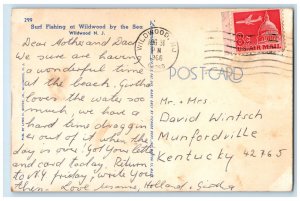 299
Surf Fishing at Wildwood by the Sea
Wildwood N. J.
Dear Mother and Dad,
We sure are having
a wonderful time
at the beach. Githa
loves the water so
much, we have a
hard time dragging
her out of it when the
day is over. Got your letter
and card today. Return
to NY friday, write you
then. Love
Holland, Githa
WILDWOOD, NJ
PM
1966
U.S. AIR MAIL
POST CARD
Mr. & Mrs.
David Wintsch
Munfordville
Kentucky 42765